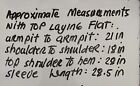 Approximate Measurements
with top laying flat:.
armpit to armpit: 21 in
shoulder to shoulder: 19 in
top shoulder to hem: 29 in
sleeve Length: 23.5 in